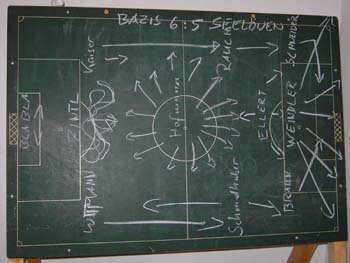 BAZIS 6:5 SEELÖWEN
Kaiser
RAUCH
SCHNEIDER
BLABLA
ZINTL
Hofmann
ELLERT
WENDLER
WITTMANN
Schmidhuber
BRAUN